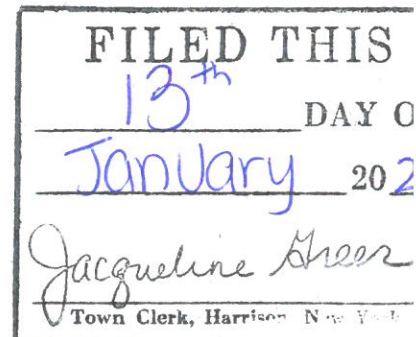 FILED THIS
13th DAY O
January 202
Jacqueline Greer
Town Clerk, Harrison New York